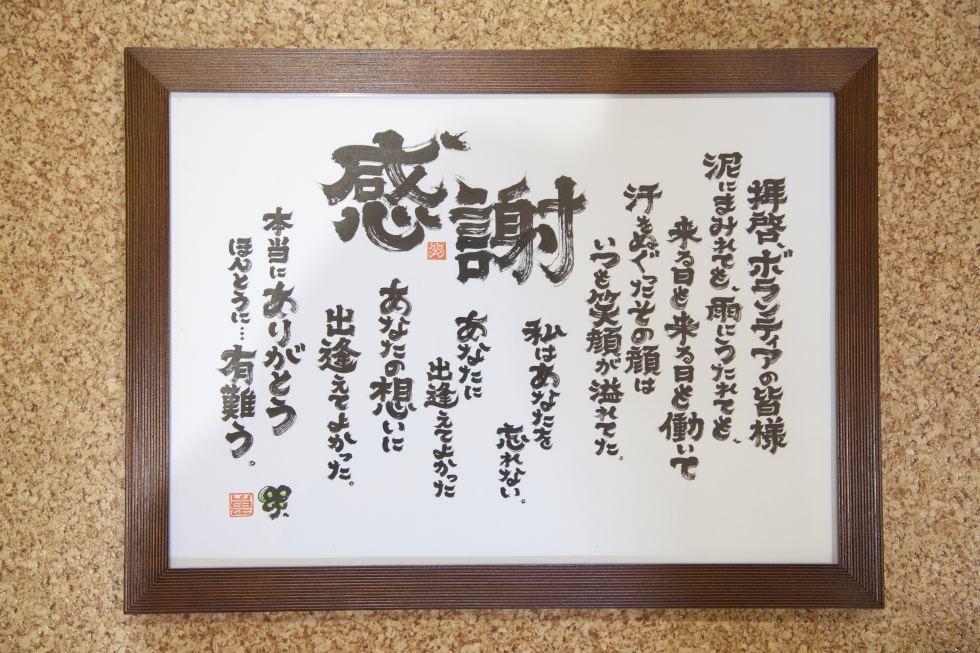 感謝
拝啓、ボランティアの皆様
泥にまみれても、雨にうたれても、
来る日も来る日も働いて
汗をぬぐったその顔は
いつも笑顔が溢れてた。
私はあなたを
忘れない。
あなたに
出逢えてよかった
あなたの想いに
出逢えてよかった。
本当にありがとう
ほんとうに…有難う。